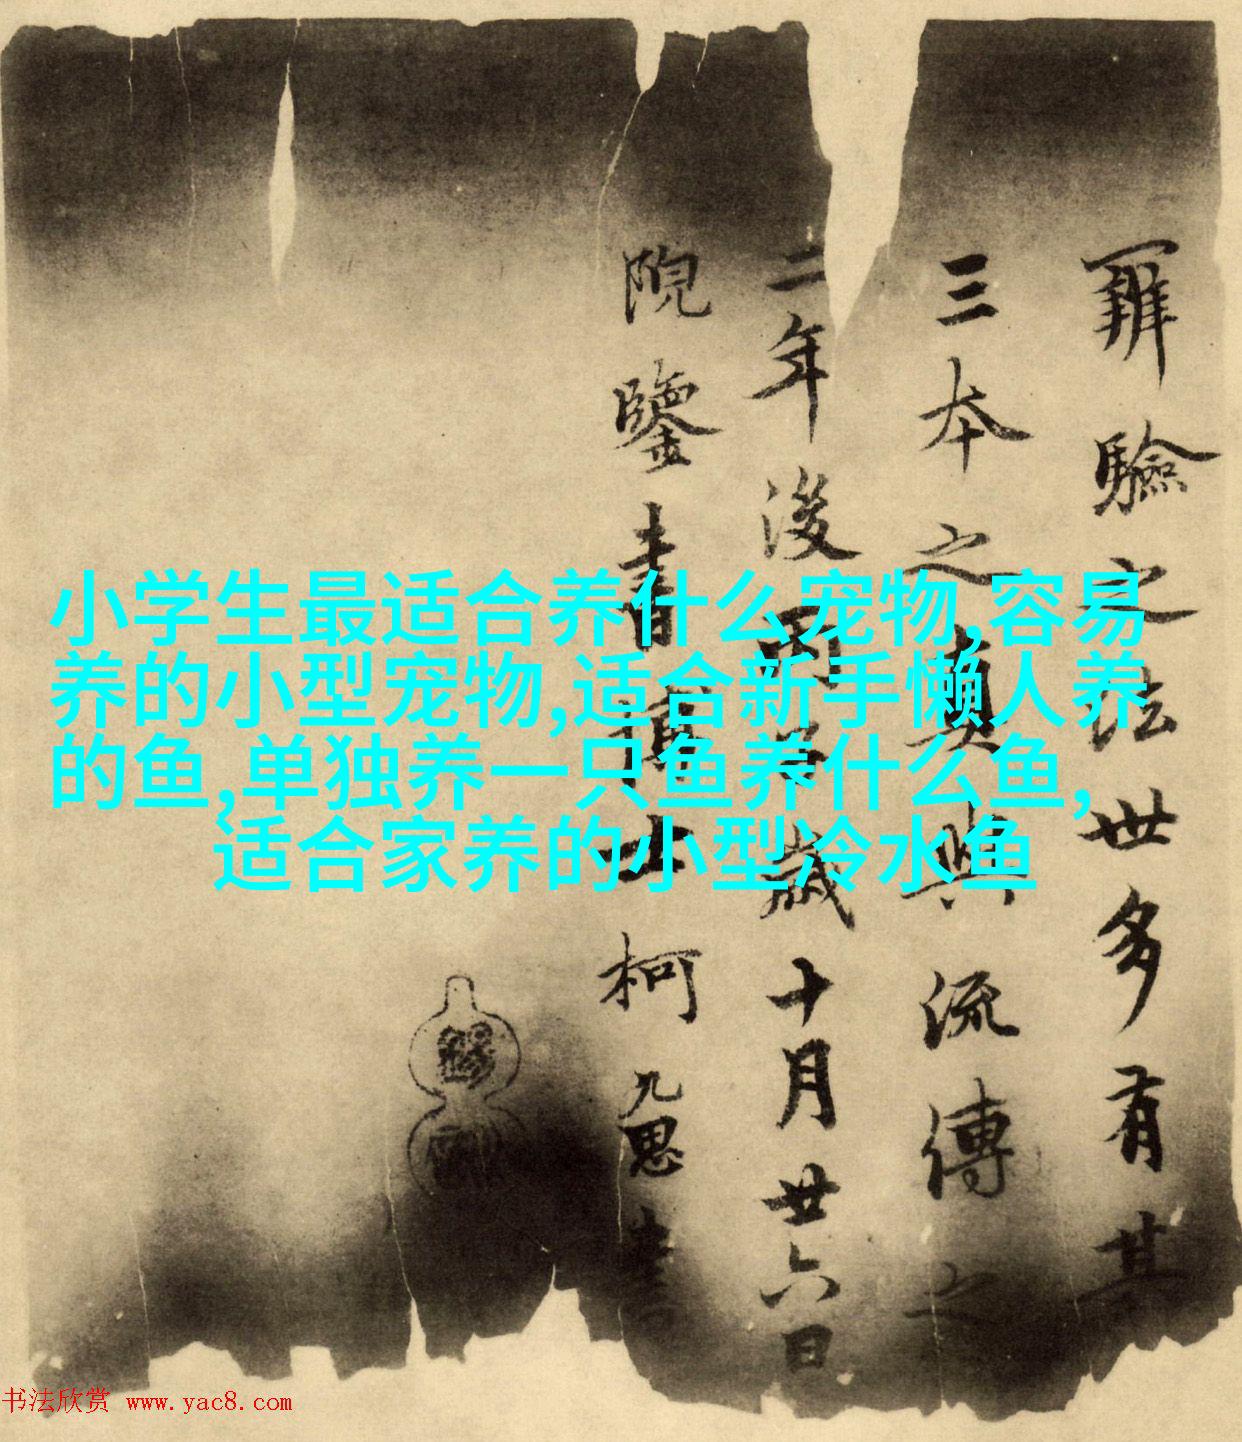 小学生最适合养什么宠物,容易
养的小型宠物,适合新手懒人养
的鱼,单独养一只鱼养什么鱼,
适合家养的小型冷水鱼
驗之 世多有其
三本之真與流傳之
二年後 歲十月廿六日
院鑒書博士柯九思書
书法欣赏 www.yac8.com